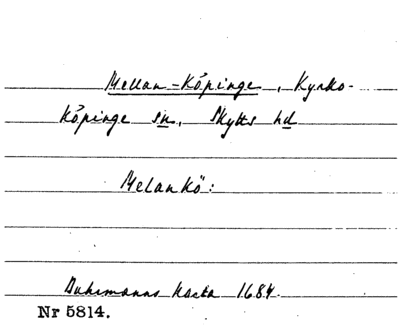 Mellan-Köpinge, Kyrko-
köpinge sn, Skytts hd
Melankö:
Buhrmanns karta 1684.
Nr 5814.